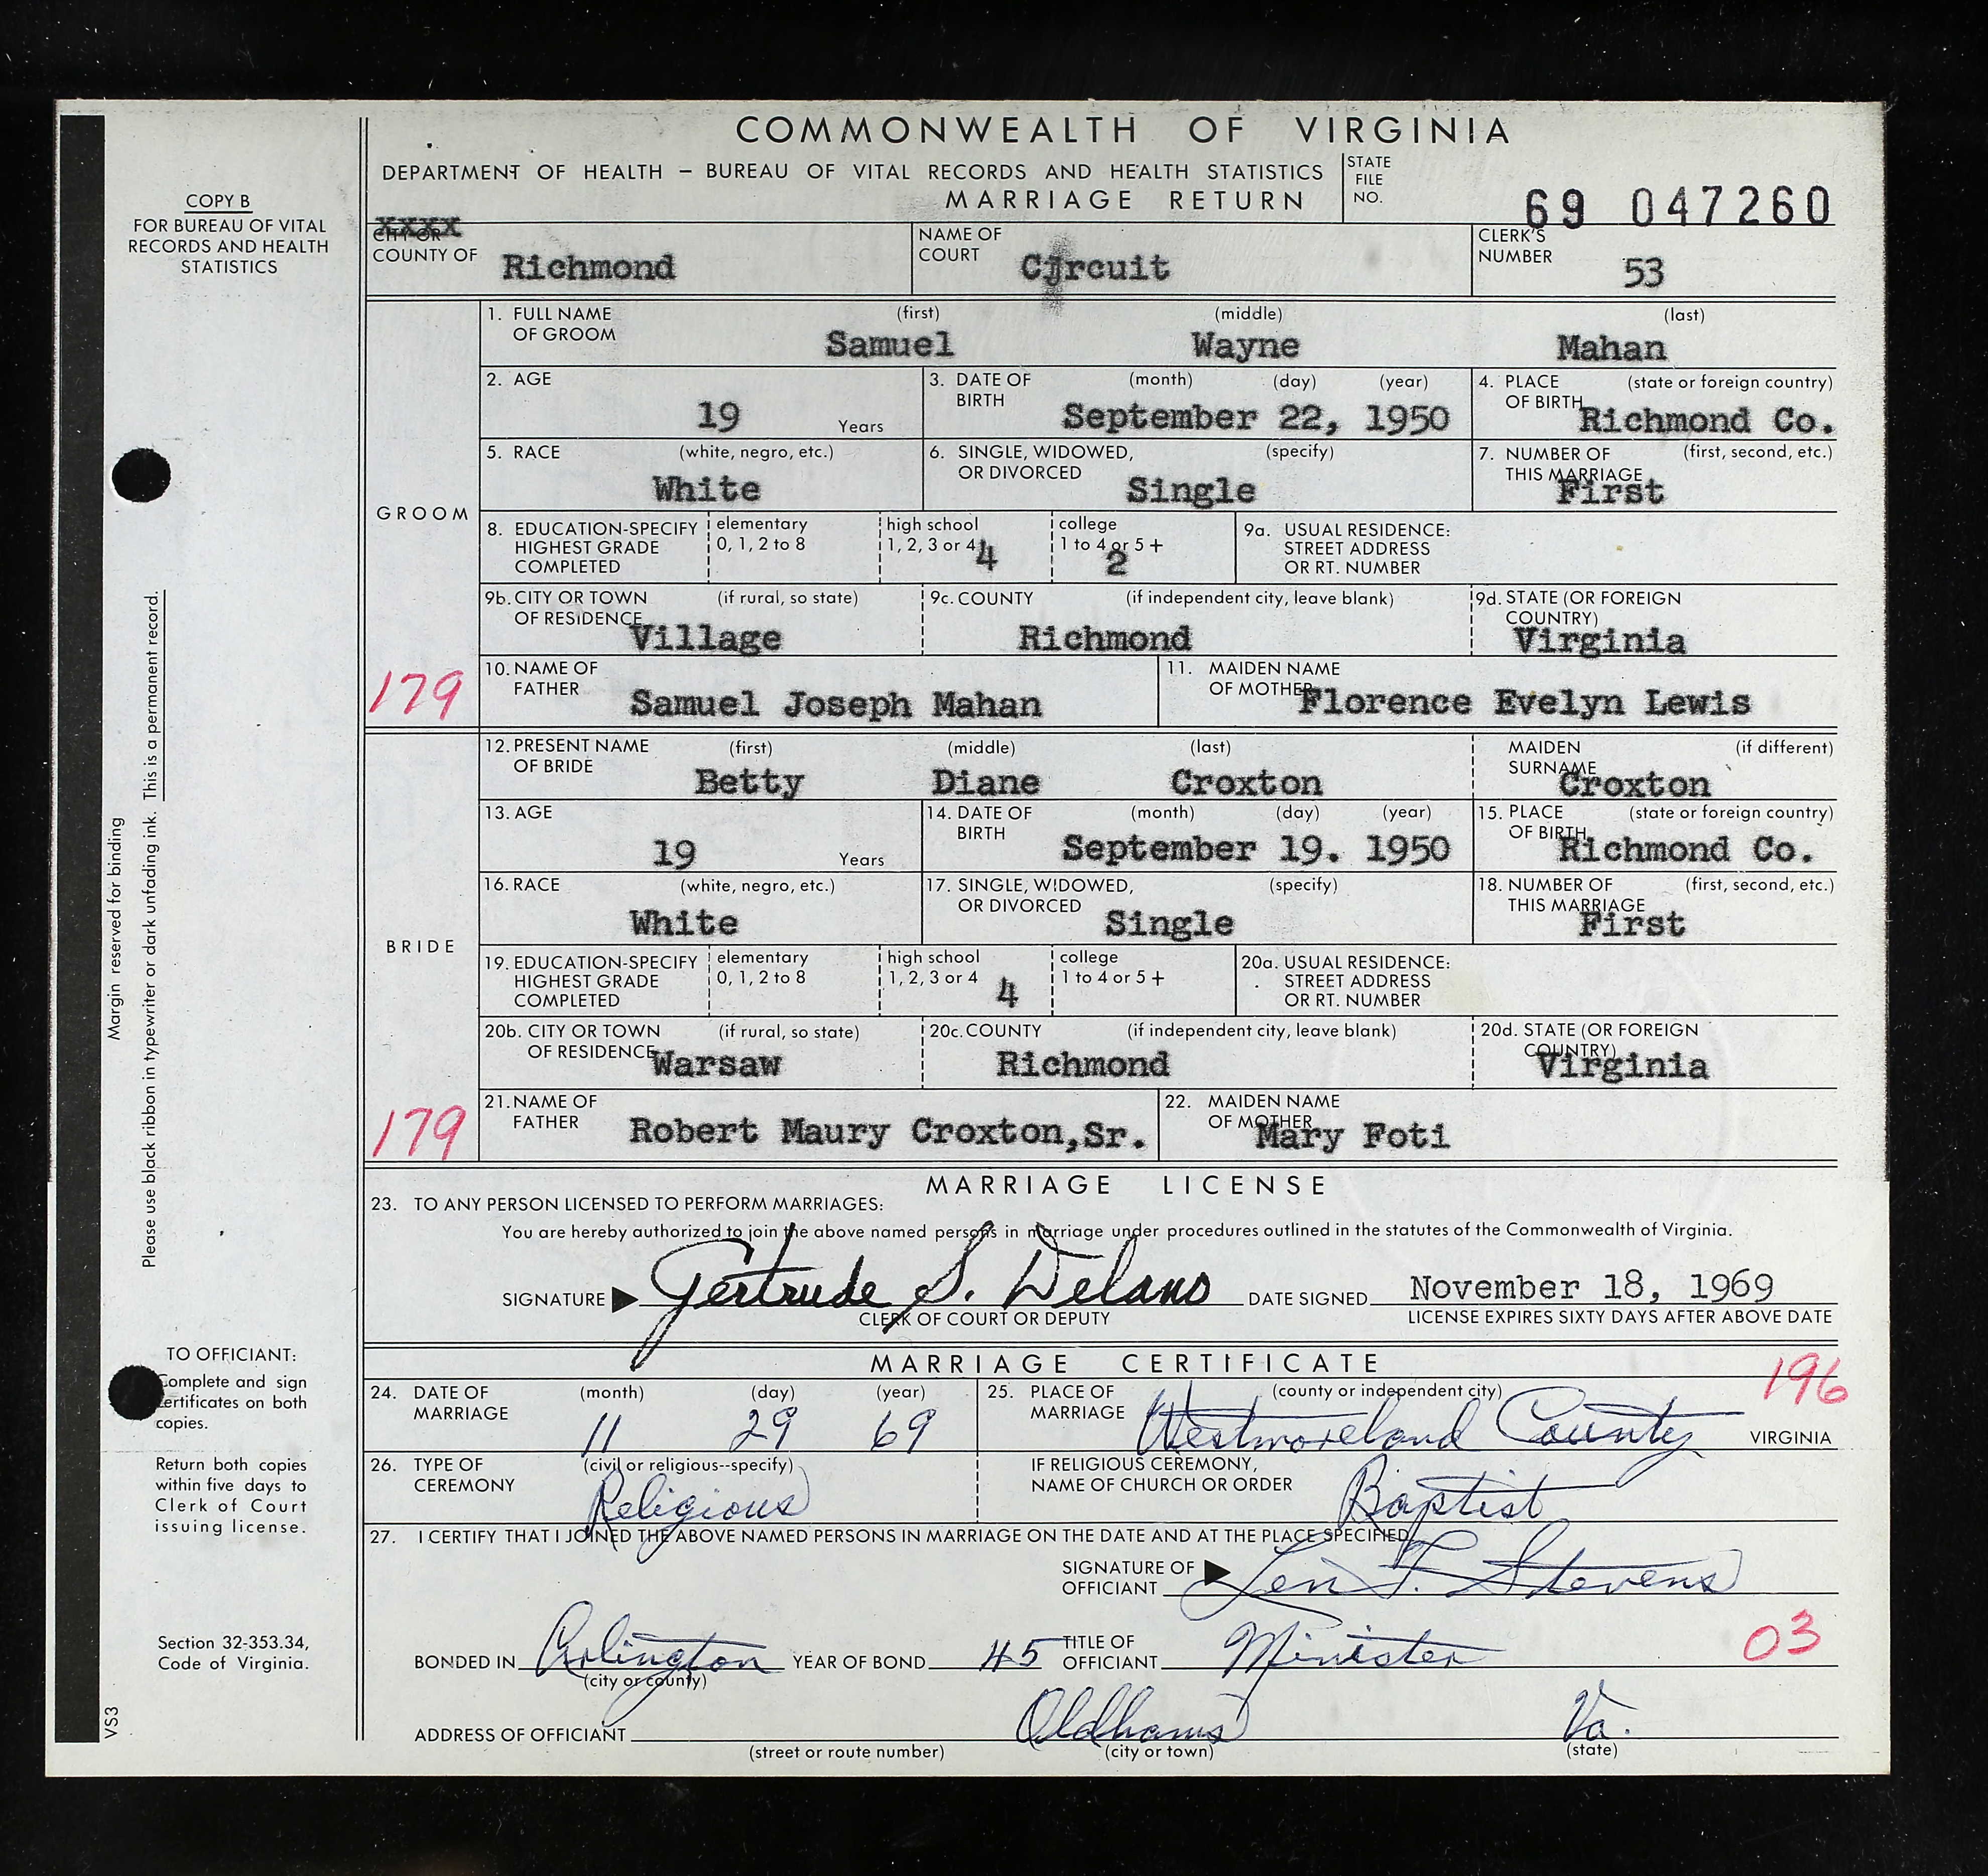 COMMONWEALTH OF VIRGINIA
DEPARTMENT OF HEALTH – BUREAU OF VITAL RECORDS AND HEALTH STATISTICS
MARRIAGE RETURN
STATE FILE NO. 69 047260
COPY B
FOR BUREAU OF VITAL
RECORDS AND HEALTH
STATISTICS
XXXX
CITY OR
COUNTY OF Richmond
NAME OF COURT Circuit
CLERK'S NUMBER 53
GROOM
1. FULL NAME OF GROOM (first) (middle) (last)
Samuel Wayne Mahan
2. AGE 19 Years
3. DATE OF BIRTH (month) (day) (year)
September 22, 1950
4. PLACE OF BIRTH (state or foreign country)
Richmond Co.
5. RACE (white, negro, etc.)
White
6. SINGLE, WIDOWED, OR DIVORCED (specify)
Single
7. NUMBER OF THIS MARRIAGE (first, second, etc.)
First
8. EDUCATION-SPECIFY HIGHEST GRADE COMPLETED
elementary 0, 1, 2 to 8
high school 1, 2, 3 or 4 4
college 1 to 4 or 5 + 2
9a. USUAL RESIDENCE: STREET ADDRESS OR RT. NUMBER
9b. CITY OR TOWN OF RESIDENCE (if rural, so state)
Village
9c. COUNTY (if independent city, leave blank)
Richmond
9d. STATE (OR FOREIGN COUNTRY)
Virginia
179
10. NAME OF FATHER Samuel Joseph Mahan
11. MAIDEN NAME OF MOTHER Florence Evelyn Lewis
BRIDE
12. PRESENT NAME OF BRIDE (first) (middle) (last)
Betty Diane Croxton
MAIDEN SURNAME (if different)
Croxton
13. AGE 19 Years
14. DATE OF BIRTH (month) (day) (year)
September 19. 1950
15. PLACE OF BIRTH (state or foreign country)
Richmond Co.
16. RACE (white, negro, etc.)
White
17. SINGLE, WIDOWED, OR DIVORCED (specify)
Single
18. NUMBER OF THIS MARRIAGE (first, second, etc.)
First
19. EDUCATION-SPECIFY HIGHEST GRADE COMPLETED
elementary 0, 1, 2 to 8
high school 1, 2, 3 or 4 4
college 1 to 4 or 5 +
20a. USUAL RESIDENCE: STREET ADDRESS OR RT. NUMBER
20b. CITY OR TOWN OF RESIDENCE (if rural, so state)
Warsaw
20c. COUNTY (if independent city, leave blank)
Richmond
20d. STATE (OR FOREIGN COUNTRY)
Virginia
179
21. NAME OF FATHER Robert Maury Croxton,Sr.
22. MAIDEN NAME OF MOTHER Mary Foti
MARRIAGE LICENSE
23. TO ANY PERSON LICENSED TO PERFORM MARRIAGES:
You are hereby authorized to join the above named persons in marriage under procedures outlined in the statutes of the Commonwealth of Virginia.
SIGNATURE Gertrude S. Delano DATE SIGNED November 18, 1969
CLERK OF COURT OR DEPUTY LICENSE EXPIRES SIXTY DAYS AFTER ABOVE DATE
MARRIAGE CERTIFICATE
196
24. DATE OF MARRIAGE (month) (day) (year)
11 29 69
25. PLACE OF MARRIAGE (county or independent city)
Westmoreland County VIRGINIA
26. TYPE OF CEREMONY (civil or religious--specify)
Religious
IF RELIGIOUS CEREMONY, NAME OF CHURCH OR ORDER Baptist
27. I CERTIFY THAT I JOINED THE ABOVE NAMED PERSONS IN MARRIAGE ON THE DATE AND AT THE PLACE SPECIFIED
SIGNATURE OF OFFICIANT Len T. Stevens
BONDED IN Arlington YEAR OF BOND 45 TITLE OF OFFICIANT Minister
(city or county)
03
ADDRESS OF OFFICIANT Oldhams Va.
(street or route number) (city or town) (state)
TO OFFICIANT:
Complete and sign
certificates on both
copies.
Return both copies
within five days to
Clerk of Court
issuing license.
Section 32-353.34,
Code of Virginia.
Margin reserved for binding
Please use black ribbon in typewriter or dark unfading ink. This is a permanent record.
VS3